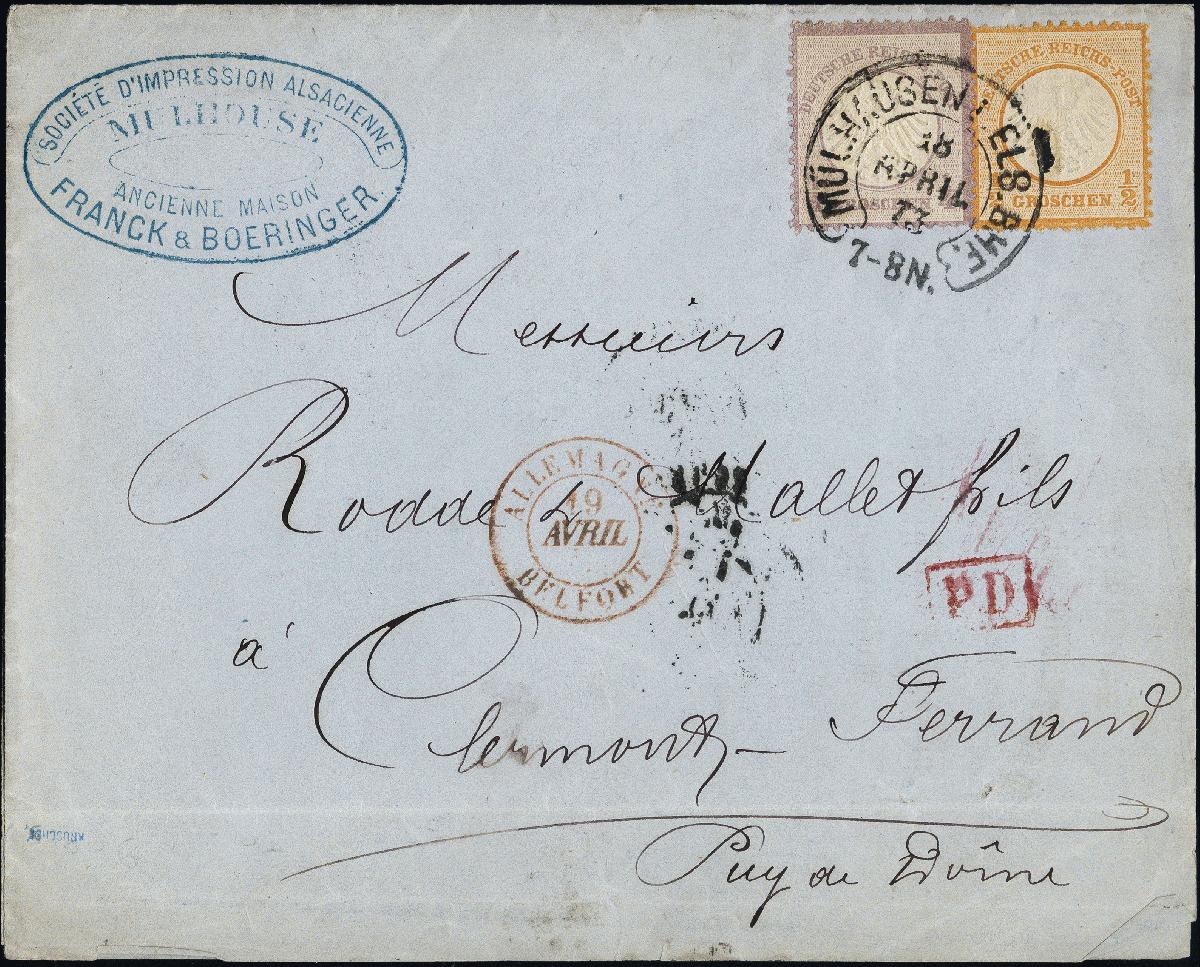 SOCIÉTÉ D'IMPRESSION ALSACIENNE
MULHOUSE
ANCIENNE MAISON
FRANCK & BOERINGER
DEUTSCHE REICHS
GROSCHEN
DEUTSCHE REICHS-POST
1/2
GROSCHEN
MÜLHAUSEN I. ELS. BHF.
18
APRIL
73
7-8N.
Messieurs
Rodde & Mallet fils
ALLEMAGNE
19
AVRIL
BELFORT
P.D.
à
Clermont-Ferrand
Puy de Dôme
KRUSCHEL